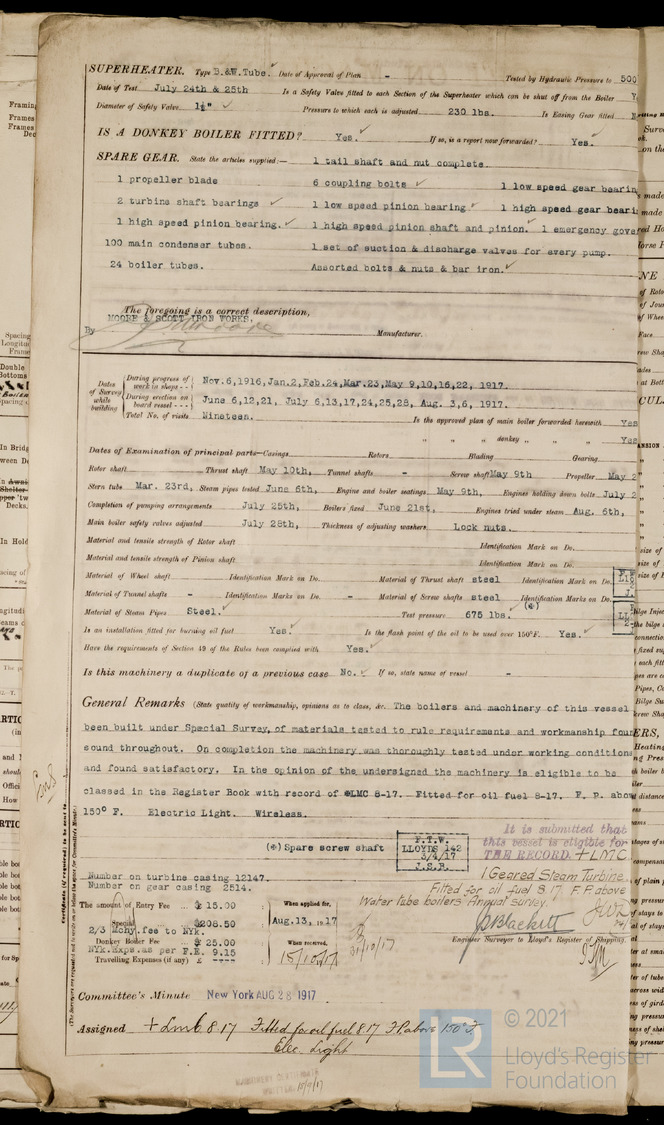 SUPERHEATER. Type B.&W.Tube. Date of Approval of Plan - Tested by Hydraulic Pressure to 500
Date of Test July 24th & 25th Is a Safety Valve fitted to each Section of the Superheater which can be shut off from the Boiler Y
Diameter of Safety Valve 1½" ✓ Pressure to which each is adjusted 230 lbs. Is Easing Gear fitted
IS A DONKEY BOILER FITTED? Yes. ✓ If so, is a report now forwarded? Yes. ✓
SPARE GEAR. State the articles supplied:— 1 tail shaft and nut complete.
1 propeller blade 6 coupling bolts ✓ 1 low speed gear bearin
2 turbins shaft bearings ✓ 1 low speed pinion bearing ✓ 1 high speed gear beari
1 high speed pinion bearing. ✓ 1 high speed pinion shaft and pinion. ✓ 1 emergency gove
100 main condenser tubes. 1 set of suction & discharge valves for every pump.
24 boiler tubes. Assorted bolts & nuts & bar iron. ✓
The foregoing is a correct description,
MOORE & SCOTT IRON WORKS.
By Manufacturer.
Dates of Survey while building
During progress of work in shops - - Nov.6,1916,Jan.2,Feb.24,Mar.23,May 9,10,16,22, 1917.
During erection on board vessel - - - June 6,12,21, July 6,13,17,24,25,28, Aug. 3,6, 1917.
Total No. of visits Nineteen. Is the approved plan of main boiler forwarded herewith Yes
" " donkey " " " Yes
Dates of Examination of principal parts—Casings Rotors Blading Gearing
Rotor shaft Thrust shaft May 10th, Tunnel shafts - Screw shaft May 9th Propeller May 2
Stern tube Mar. 23rd, Steam pipes tested June 6th, Engine and boiler seatings May 9th, Engines holding down bolts July 2
Completion of pumping arrangements July 25th, Boilers fixed June 21st, Engines tried under steam Aug. 6th,
Main boiler safety valves adjusted July 28th, Thickness of adjusting washers Lock nuts.
Material and tensile strength of Rotor shaft Identification Mark on Do.
Material and tensile strength of Pinion shaft Identification Mark on Do.
Material of Wheel shaft Identification Mark on Do. Material of Thrust shaft steel Identification Mark on Do.
Material of Tunnel shafts - Identification Marks on Do. - Material of Screw shafts steel Identification Marks on Do.
Material of Steam Pipes Steel. ✓ Test pressure 675 lbs. ✓ (*)
Is an installation fitted for burning oil fuel Yes. ✓ Is the flash point of the oil to be used over 150°F. Yes. ✓
Have the requirements of Section 49 of the Rules been complied with Yes. ✓
Is this machinery a duplicate of a previous case No. ✓ If so, state name of vessel -
General Remarks (State quality of workmanship, opinions as to class, &c. The boilers and machinery of this vessel
been built under Special Survey, of materials tested to rule requirements and workmanship foun
sound throughout. On completion the machinery was thoroughly tested under working conditions
and found satisfactory. In the opinion of the undersigned the machinery is eligible to be
classed in the Register Book with record of +LMC 8-17. Fitted for oil fuel 8-17. F. P. abov
150° F. Electric Light. Wireless.
(*) Spare screw shaft
F.T.W.
LLOYDS 142
3/4/17
J.S.B.
It is submitted that
this vessel is eligible for
THE RECORD. + LMC.
1 Geared Steam Turbine
Fitted for oil fuel 8.17 F.P. above
Water tube boilers Annual survey.
Number on turbine casing 12147.
Number on gear casing 2514.
The amount of Entry Fee .. $ 15.00 When applied for,
Special $208.50 Aug.13, 1917
2/3 Mchy.fee to NYK.
Donkey Boiler Fee .. $ 25.00 When received,
NYK.Exps.an per F.E. 9.15
Travelling Expenses (if any) £ ---- 15/10/17 31/10/17
JBlackett
Engineer Surveyor to Lloyd's Register of Shipping.
Committee's Minute New York AUG 28 1917
Assigned + LMC 8.17 Fitted for oil fuel 8.17 F.P. above 150° F.
Elec. Light
(The Surveyors are requested not to write on or below the space for Committee's Minute.)
© 2021
Lloyd's Register
Foundation